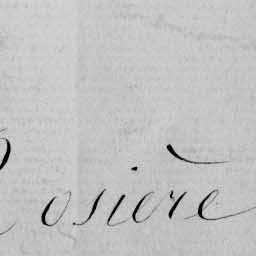 Rosière